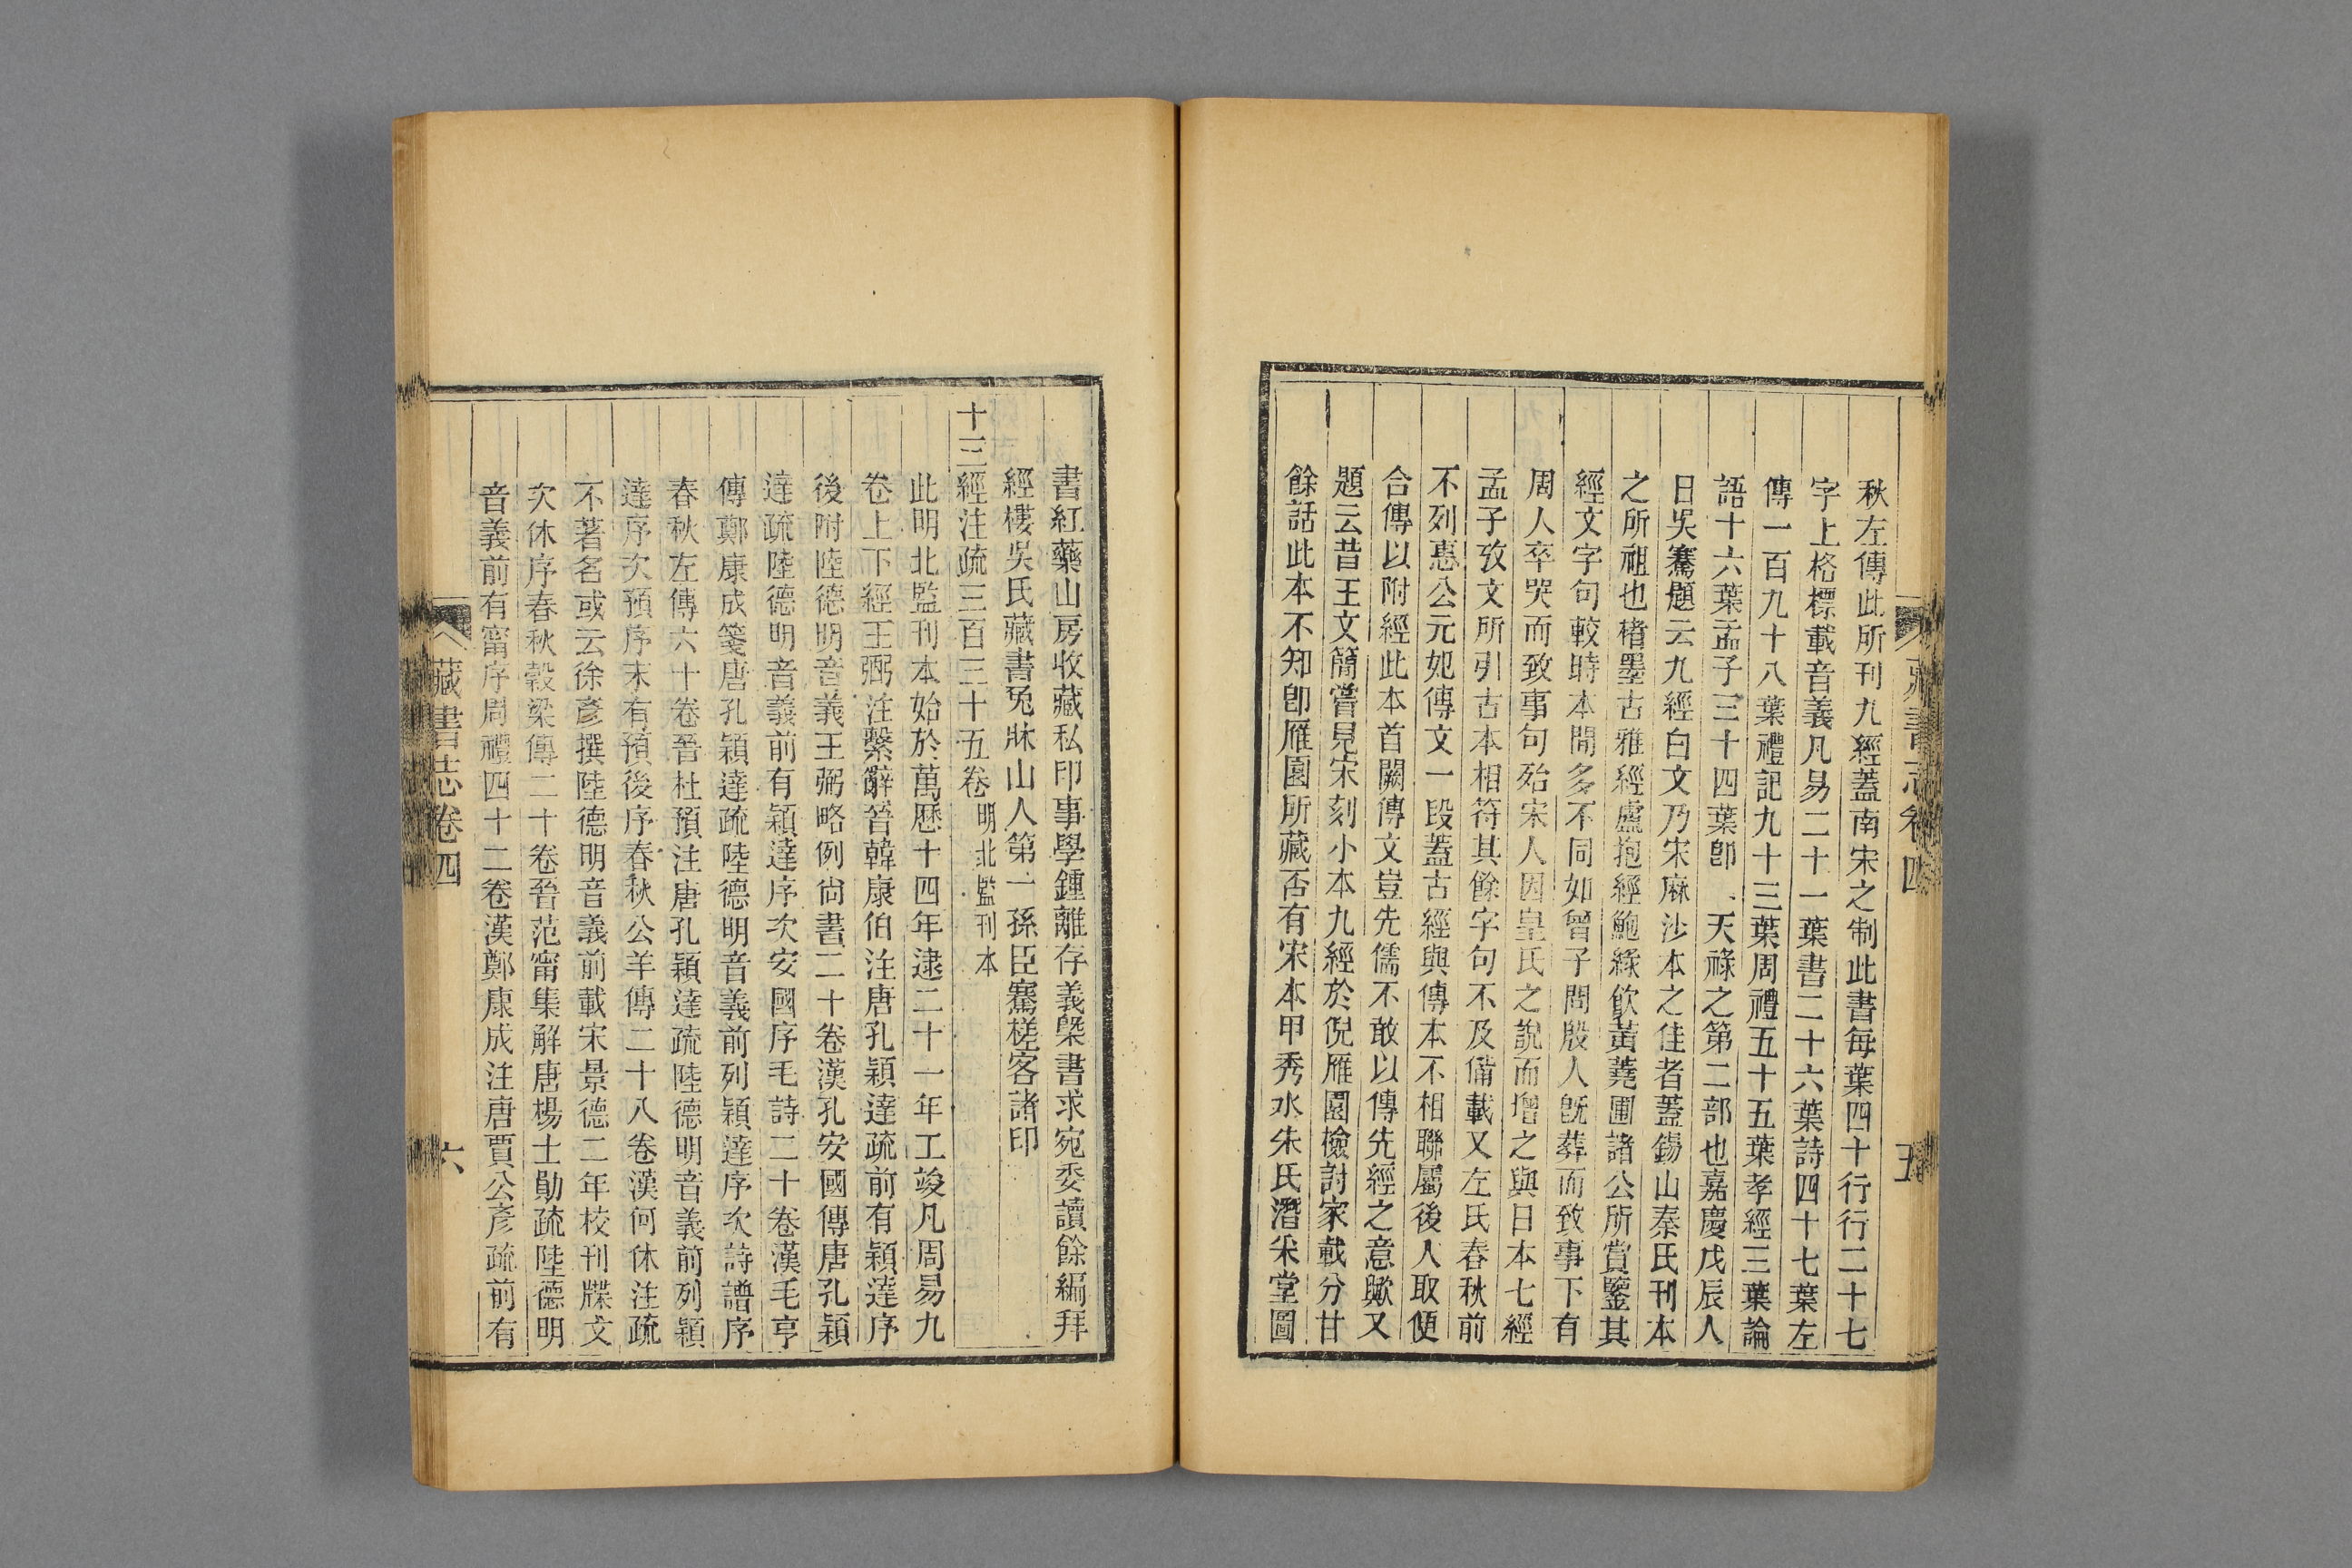 秋左傳此所刊九經蓋南宋之制此書每葉四十行行二十七
字上格標載音義凡易二十一葉書二十六葉詩四十七葉左
傳一百九十八葉禮記九十三葉周禮五十五葉孝經三葉論
語十六葉孟子三十四葉卽天祿之第二部也嘉慶戊辰人
日吳騫題云九經白文乃宋麻沙本之佳者蓋錫山秦氏刊本
之所祖也楮墨古雅經盧抱經鮑綠飮黃蕘圃諸公所賞鑒其
經文字句較時本閒多不同如曾子問殷人旣葬而致事下有
周人卒哭而致事句殆宋人因皇氏之說而增之與日本七經
孟子攷文所引古本相符其餘字句不及備載又左氏春秋前
不列惠公元妃傳文一段蓋古經與傳本不相聯屬後人取便
合傳以附經此本首闕傳文豈先儒不敢以傳先經之意歟又
題云昔王文簡嘗見宋刻小本九經於倪雁園檢討家載分甘
餘話此本不知卽雁園所藏否有宋本甲秀水朱氏潛采堂圖
藏書志卷四
五
書紅藥山房收藏私印事學鍾離存義槩書求宛委讀餘編拜
經樓吳氏藏書兔牀山人第一孫臣騫槎客諸印
十三經注疏三百三十五卷明北監刊本
此明北監刊本始於萬曆十四年逮二十一年工竣凡周易九
卷上下經王弼注繫辭晉韓康伯注唐孔穎達疏前有穎達序
後附陸德明音義王弼略例尚書二十卷漢孔安國傳唐孔穎
達疏陸德明音義前有穎達序次安國序毛詩二十卷漢毛亨
傳鄭康成箋唐孔穎達疏陸德明音義前列穎達序次詩譜序
春秋左傳六十卷晉杜預注唐孔穎達疏陸德明音義前列穎
達序次預序末有預後序春秋公羊傳二十八卷漢何休注疏
不著名或云徐彥撰陸德明音義前載宋景德二年校刊牒文
次休序春秋穀梁傳二十卷晉范甯集解唐楊士勛疏陸德明
音義前有甯序周禮四十二卷漢鄭康成注唐賈公彥疏前有
藏書志卷四
六